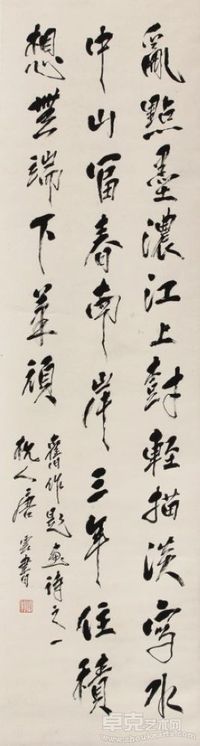 亂點墨濃江上封輕描淡寫水
中山富春南岸三年住積
想無端下筆頑
舊作題畫詩之一
杭人唐雲書
卓克艺术网